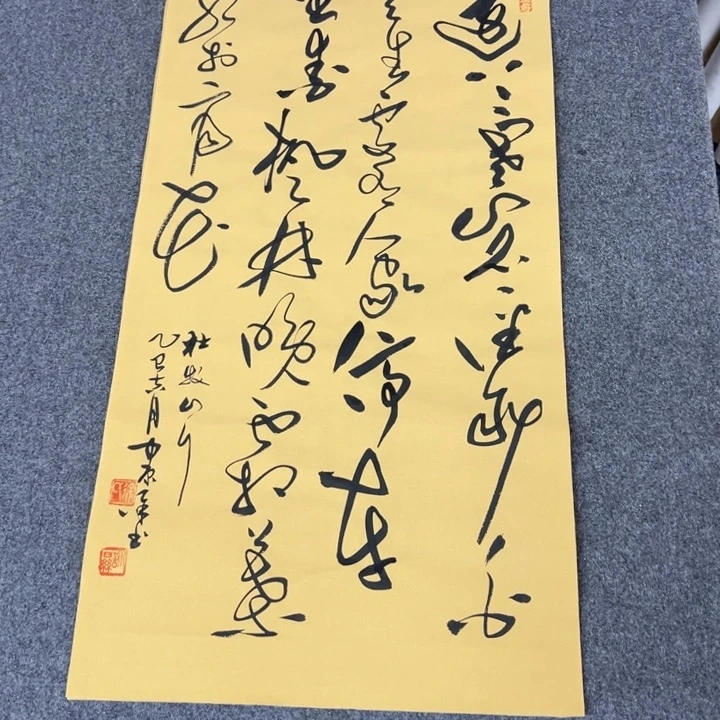 遠上寒山石徑斜白
云生處有人家停車
坐愛楓林晚霜葉
紅於二月花
杜牧山行
乙巳六月
书